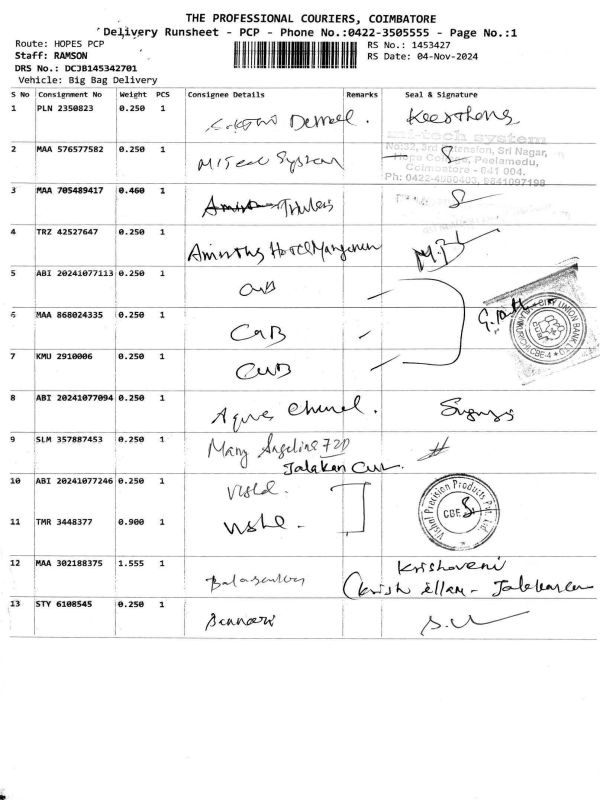 THE PROFESSIONAL COURIERS, COIMBATORE
Delivery Runsheet - PCP - Phone No.:0422-3505555 - Page No.:1
Route: HOPES PCP
RS No.: 1453427
Staff: RAMSON
RS Date: 04-Nov-2024
DRS No.: DCJB145342701
Vehicle: Big Bag Delivery
S No Consignment No Weight PCS Consignee Details Remarks Seal & Signature
1 PLN 2350823 0.250 1
mi-tech system
2 MAA 576577582 0.250 1 System
No:32, 3rd Extension, Sri Nagar,
Hope College, Peelamedu,
Coimbatore - 641 004.
3 MAA 705489417 0.460 1
4 TRZ 42527647 0.250 1
5 ABI 20241077113 0.250 1 CUB
CITY UNION BANK LTD
CBE-4
6 MAA 868024335 0.250 1 CUB
7 KMU 2910006 0.250 1 CUB
8 ABI 20241077094 0.250 1
9 SLM 357887453 0.250 1 Mary Angeline 72D
10 ABI 20241077246 0.250 1
Vishal Precision Products Pvt. Ltd.
CBE
11 TMR 3448377 0.900 1
12 MAA 302188375 1.555 1 Krishaveni
13 STY 6108545 0.250 1 Bannari